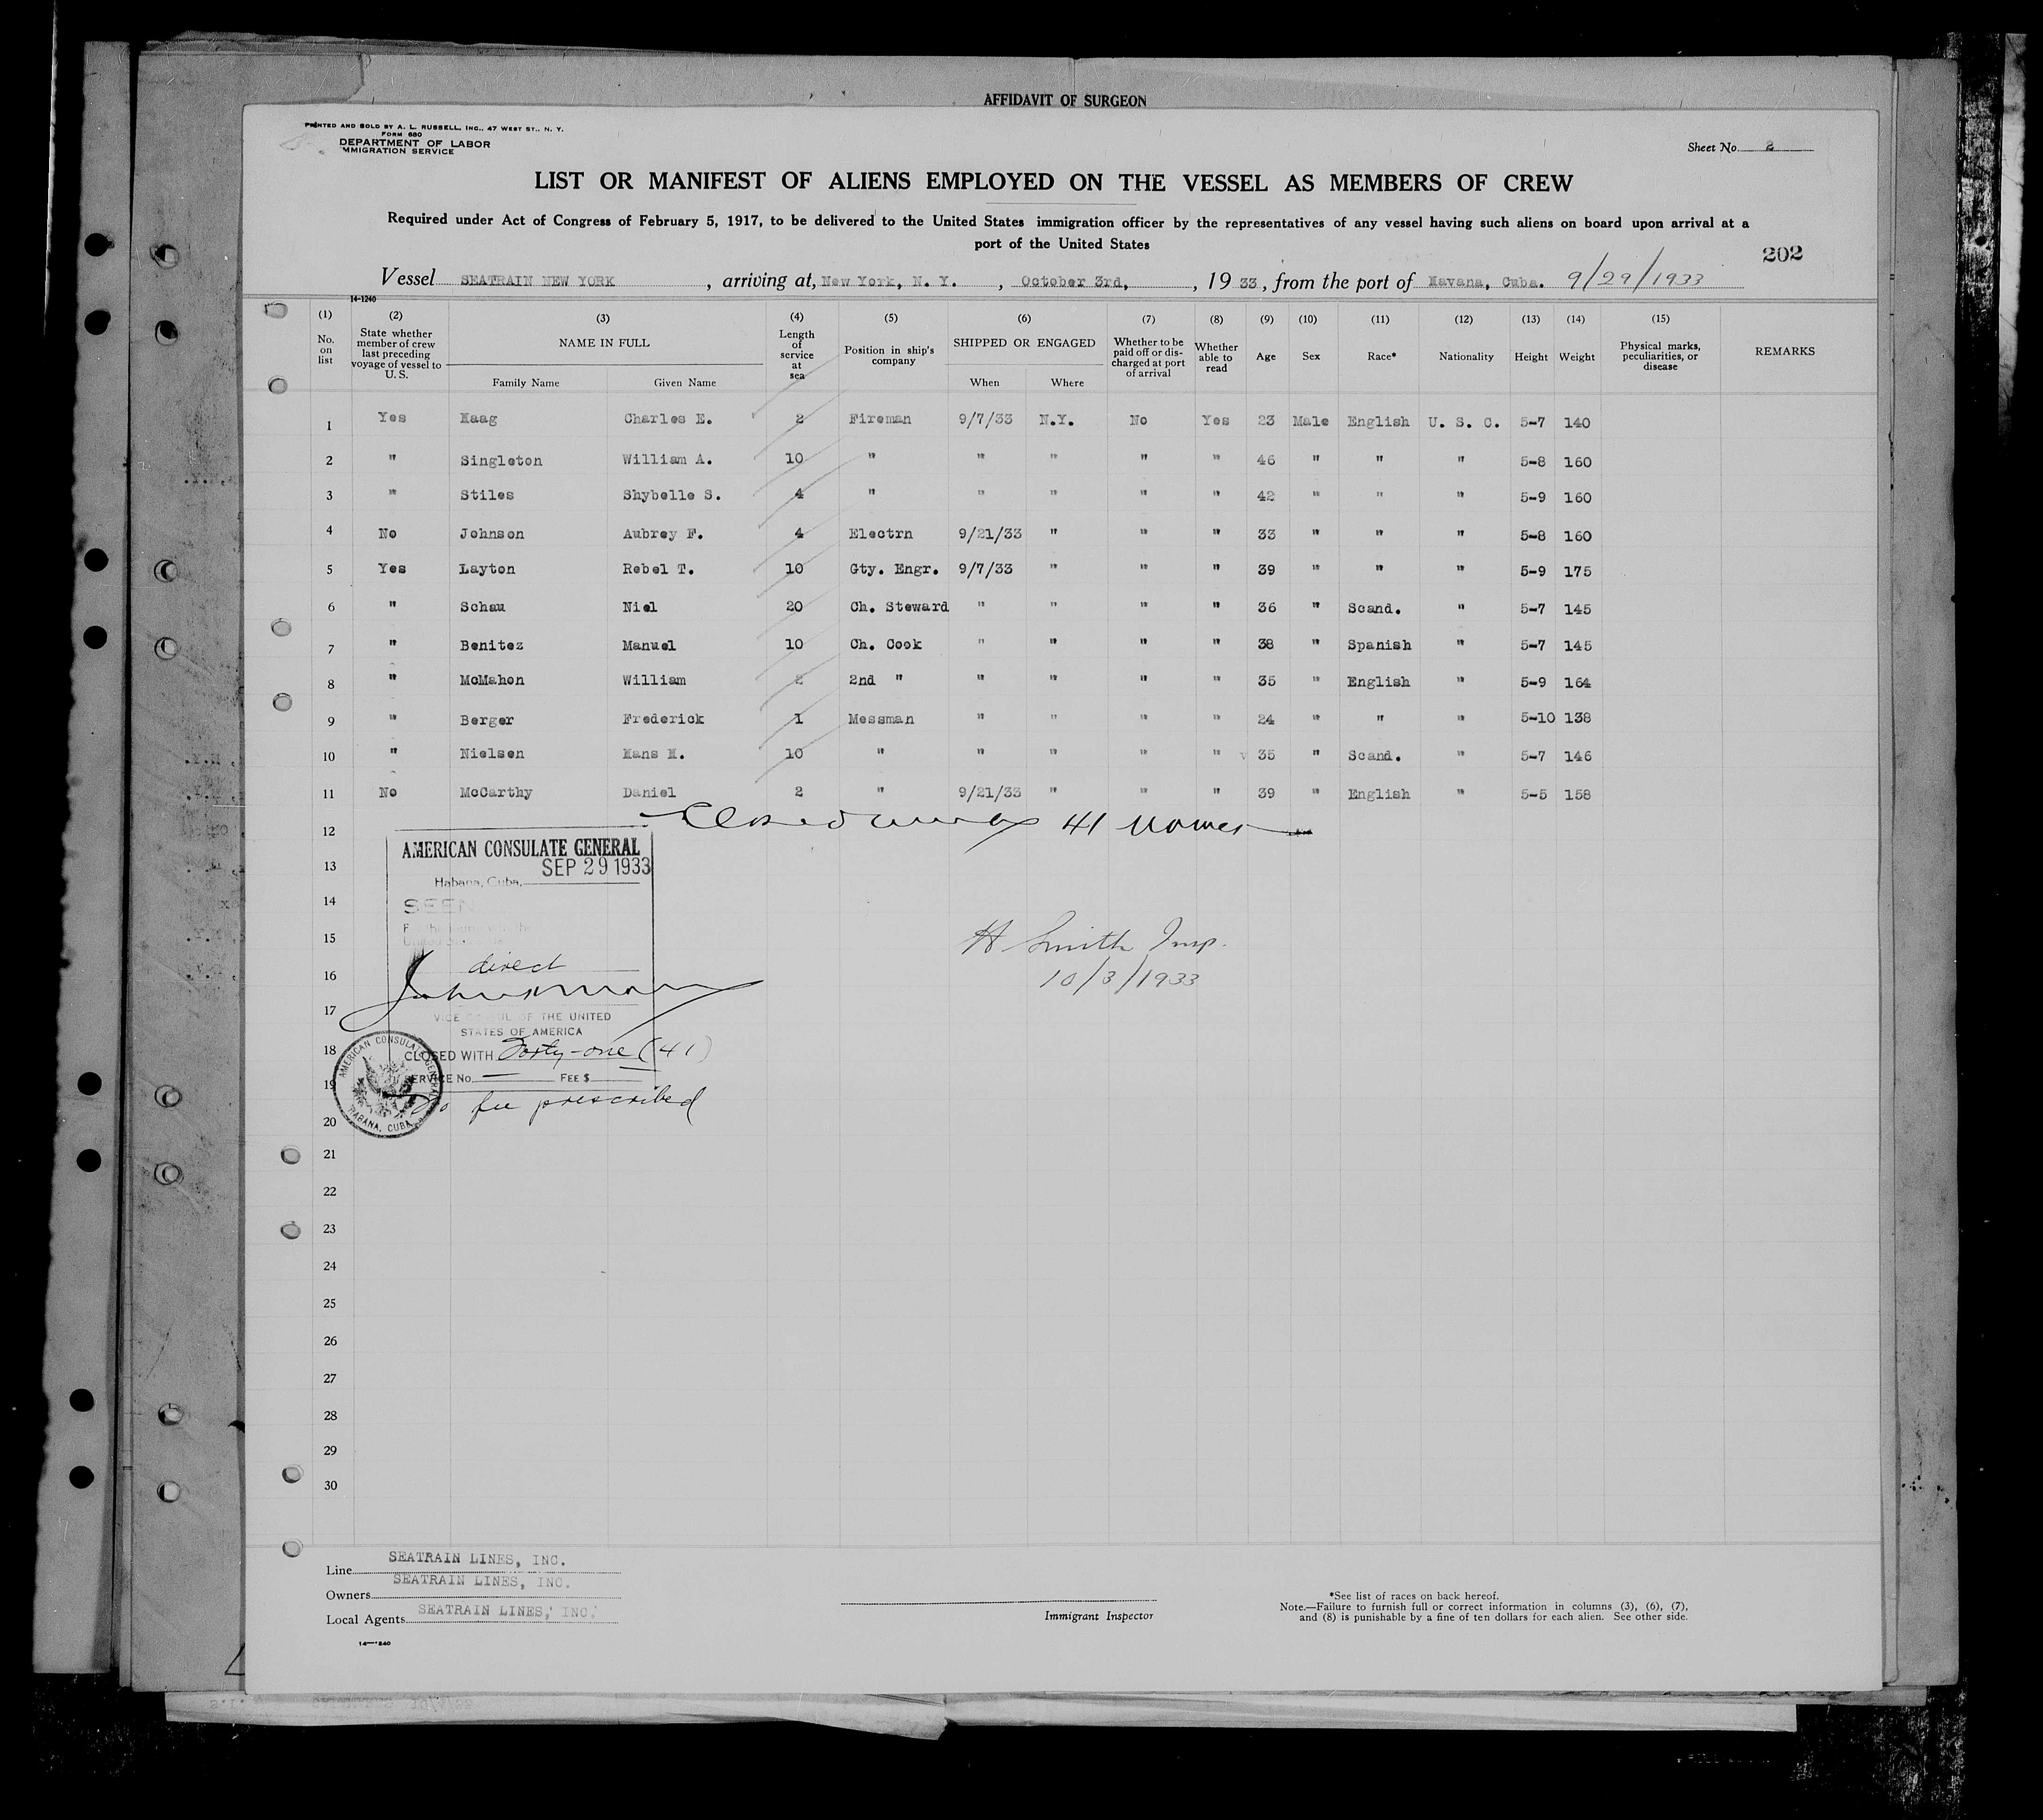 AFFIDAVIT OF SURGEON
PRINTED AND SOLD BY A. L. RUSSELL, INC., 47 WEST ST., N. Y.
FORM 680
DEPARTMENT OF LABOR
MMIGRATION SERVICE
Sheet No. 2
LIST OR MANIFEST OF ALIENS EMPLOYED ON THE VESSEL AS MEMBERS OF CREW
Required under Act of Congress of February 5, 1917, to be delivered to the United States immigration officer by the representatives of any vessel having such aliens on board upon arrival at a
port of the United States
202
Vessel SEATRAIN NEW YORK, arriving at, New York, N. Y., October 3rd, , 19 33, from the port of Havana, Cuba. 9/29/1933
14-1240
(1) (2) (3) (4) (5) (6) (7) (8) (9) (10) (11) (12) (13) (14) (15)
No. on list State whether member of crew last preceding voyage of vessel to U. S. NAME IN FULL Length of service at sea Position in ship's company SHIPPED OR ENGAGED Whether to be paid off or discharged at port of arrival Whether able to read Age Sex Race* Nationality Height Weight Physical marks, peculiarities, or disease REMARKS
Family Name Given Name When Where
1 Yes Haag Charles E. 2 Fireman 9/7/33 N.Y. No Yes 23 Male English U. S. C. 5-7 140
2 " Singleton William A. 10 " " " " " 46 " " " 5-8 160
3 " Stiles Shybelle S. 4 " " " " " 42 " " " 5-9 160
4 No Johnson Aubrey F. 4 Electrn 9/21/33 " " " 33 " " " 5-8 160
5 Yes Layton Rebel T. 10 Gty. Engr. 9/7/33 " " " 39 " " " 5-9 175
6 " Schau Niel 20 Ch. Steward " " " " 36 " Scand. " 5-7 145
7 " Benitez Manuel 10 Ch. Cook " " " " 38 " Spanish " 5-7 145
8 " McMahon William 2 2nd " " " " " 35 " English " 5-9 164
9 " Berger Frederick 1 Messman " " " " 24 " " " 5-10 138
10 " Nielsen Hans H. 10 " " " " " 35 " Scand. " 5-7 146
11 No McCarthy Daniel 2 " 9/21/33 " " " 39 " English " 5-5 158
12 Closed with 41 names
13
14
15
16
17
18
19
20
21
22
23
24
25
26
27
28
29
30
AMERICAN CONSULATE GENERAL
SEP 29 1933
Habana, Cuba,
SEEN
direct
VICE CONSUL OF THE UNITED
STATES OF AMERICA
CLOSED WITH Forty-one (41)
SERVICE No. — FEE $
No fee prescribed
AMERICAN CONSULATE GENERAL
HABANA, CUBA
H Smith Insp.
10/3/1933
Line SEATRAIN LINES, INC.
Owners SEATRAIN LINES, INC.
Local Agents SEATRAIN LINES, INC.
14-1240
Immigrant Inspector
*See list of races on back hereof.
Note.—Failure to furnish full or correct information in columns (3), (6), (7),
and (8) is punishable by a fine of ten dollars for each alien. See other side.